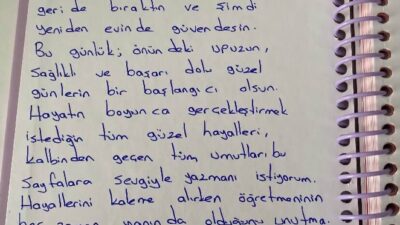 geride bıraktın ve şimdi
yeniden evinde güvendesin.
Bu günlük; önündeki upuzun,
sağlıklı ve başarı dolu güzel
günlerin bir başlangıcı olsun.
Hayatın boyunca gerçekleştirmek
istediğin tüm güzel hayalleri,
kalbinden geçen tüm umutları bu
sayfalara sevgiyle yazmanı istiyorum.
Hayallerini kaleme alırken öğretmeninin
her zaman yanında olduğunu unutma.